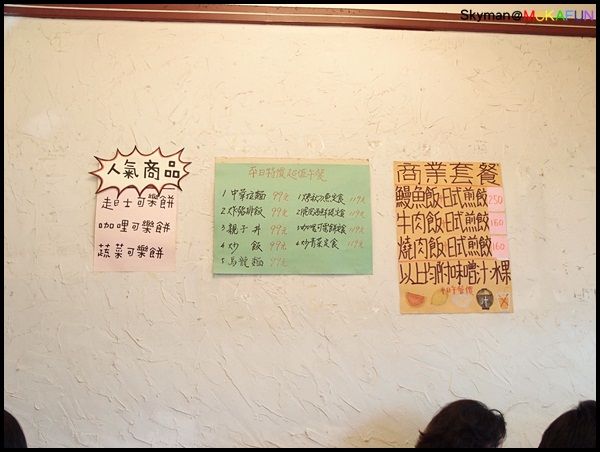 Skyman@MOKAFUN
人氣商品
起士可樂餅
咖哩可樂餅
蔬菜可樂餅
平日特價超值午餐
1 中華拉麵 99元
2 炸豬排飯 99元
3 親子丼 99元
4 炒飯 99元
5 烏龍麵 99元
1 烤秋刀魚定食 119元
119元
3 咖哩可樂餅定食 119元
4 炒青菜定食 119元
商業套餐
鰻魚飯,日式煎餃 250
牛肉飯,日式煎餃 160
燒肉飯,日式煎餃 160
以上均附味噌汁、水果